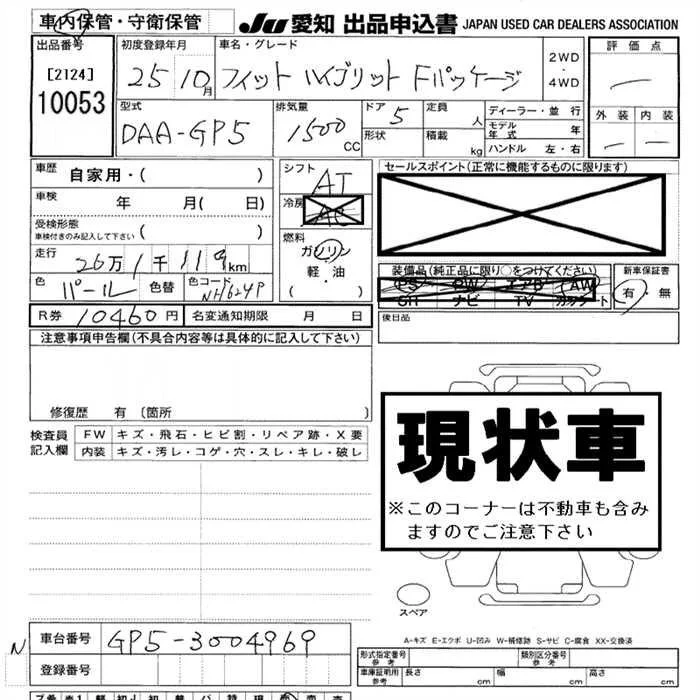 車内保管・守衛保管 JU 愛知 出品申込書 JAPAN USED CAR DEALERS ASSOCIATION
出品番号 初度登録年月 車名・グレード 評価点
[2124] 25 10月 フィット ハイブリット Fパッケージ 2WD・4WD
10053
型式 排気量 ドア 定員 ディーラー・並行 外装 内装
DAA-GP5 1500cc 5 人 モデル年式 年
形状 積載 kg ハンドル 左・右
車歴 自家用・( ) シフト AT セールスポイント(正常に機能するものに限ります)
車検 年 月( 日) 冷房 AC
受検形態
車検付きのみ記入して下さい ( ) 燃料 ガソリン
走行 26万1千119km 軽・油
装備品(純正品に限り○をつけてください) 新車保証書
色 パール 色替 色コード NH624P ( ・ ) PS PW エアB AW 有・無
SR ナビ TV カセット
R券 10460円 名変通知期限 月 日 後日品
注意事項申告欄(不具合内容等は具体的に記入して下さい)
修復歴 有 〔箇所 〕
現状車
※このコーナーは不動車も含み
ますのでご注意下さい
検査員 FW キズ・飛石・ヒビ割・リペア跡・X要
記入欄 内装 キズ・汚レ・コゲ・穴・スレ・キレ・破レ
スペア
A-キズ E-エクボ U-凹み W-補修跡 S-サビ C-腐食 XX-交換済
N 車台番号 GP5-3004969
登録番号
形式指定番号 参考 類別区分番号 参考
車庫証明用 参考 長さ cm 幅 cm 高さ cm